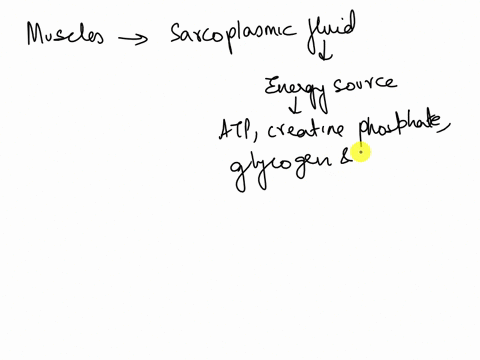 Muscles → Sarcoplasmic fluid
↓
Energy source
↓
ATP, creatine phosphate,
glycogen &